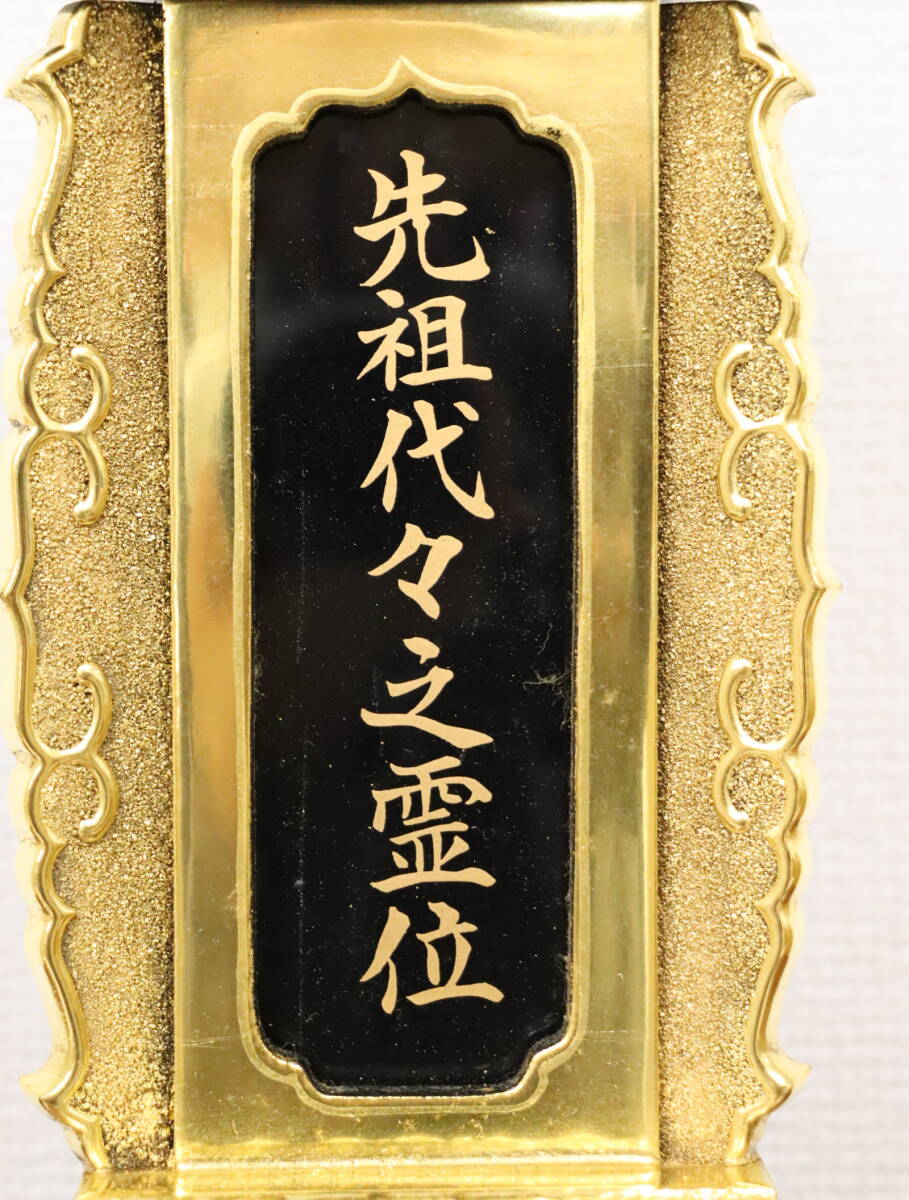 先祖代々之霊位